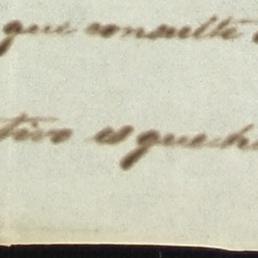 que consulte
tivo es que ha